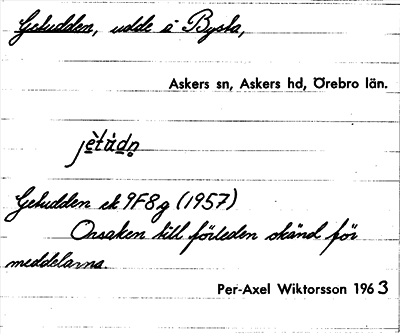 Getudden, udde å Bysta,
Askers sn, Askers hd, Örebro län.
Getudden ek 9F8g (1957)
Orsaken till förleden okänd för
meddelarna.
Per-Axel Wiktorsson 1963